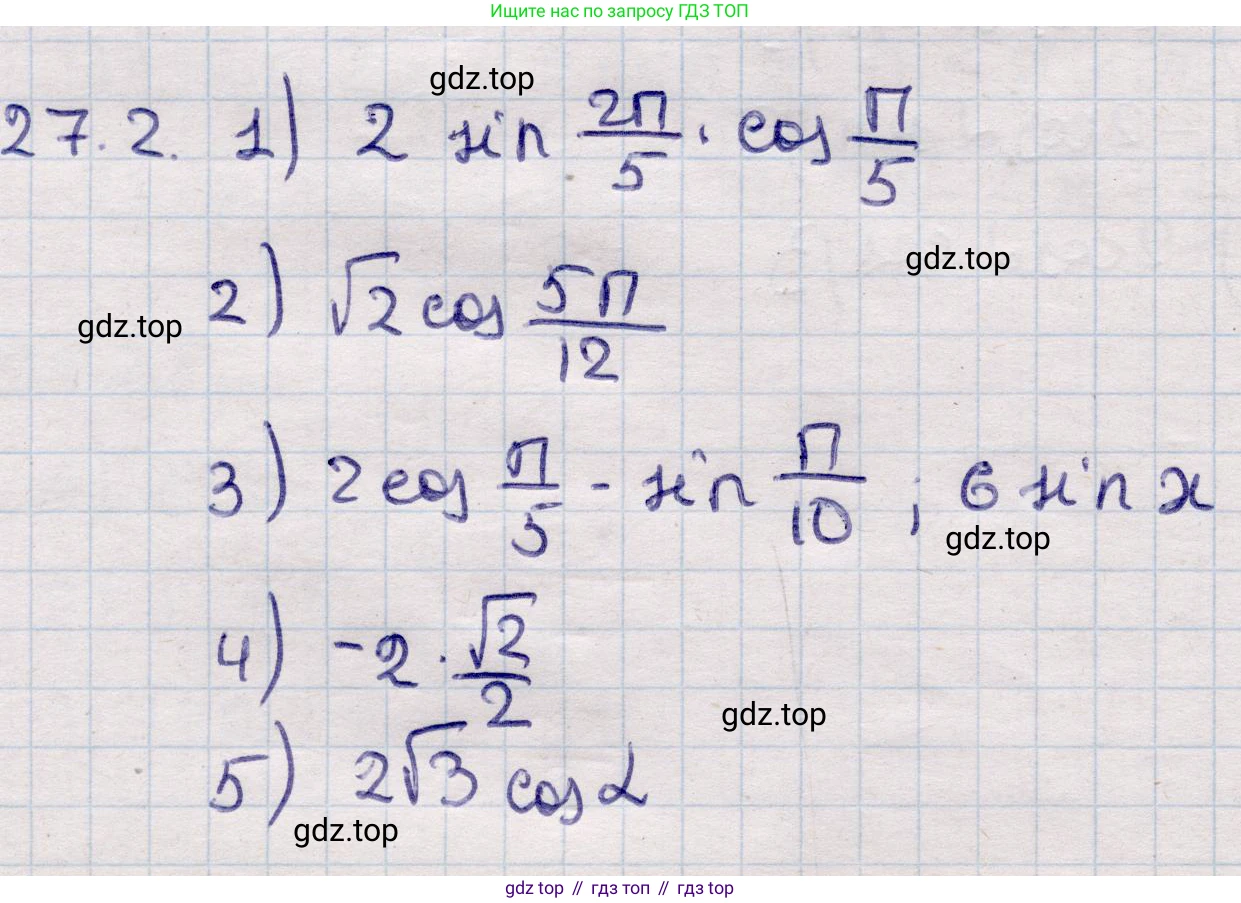 Ищите нас по запросу ГДЗ ТОП
gdz.top
27.2. 1) 2 sin 2π/5 · cos π/5
gdz.top
2) √2 cos 5π/12
gdz.top
3) 2 cos π/5 - sin π/10 ; 6 sin x
gdz.top
4) -2 · √2/2
gdz.top
5) 2√3 cos α
gdz.top
gdz top // гдз топ // гдз top